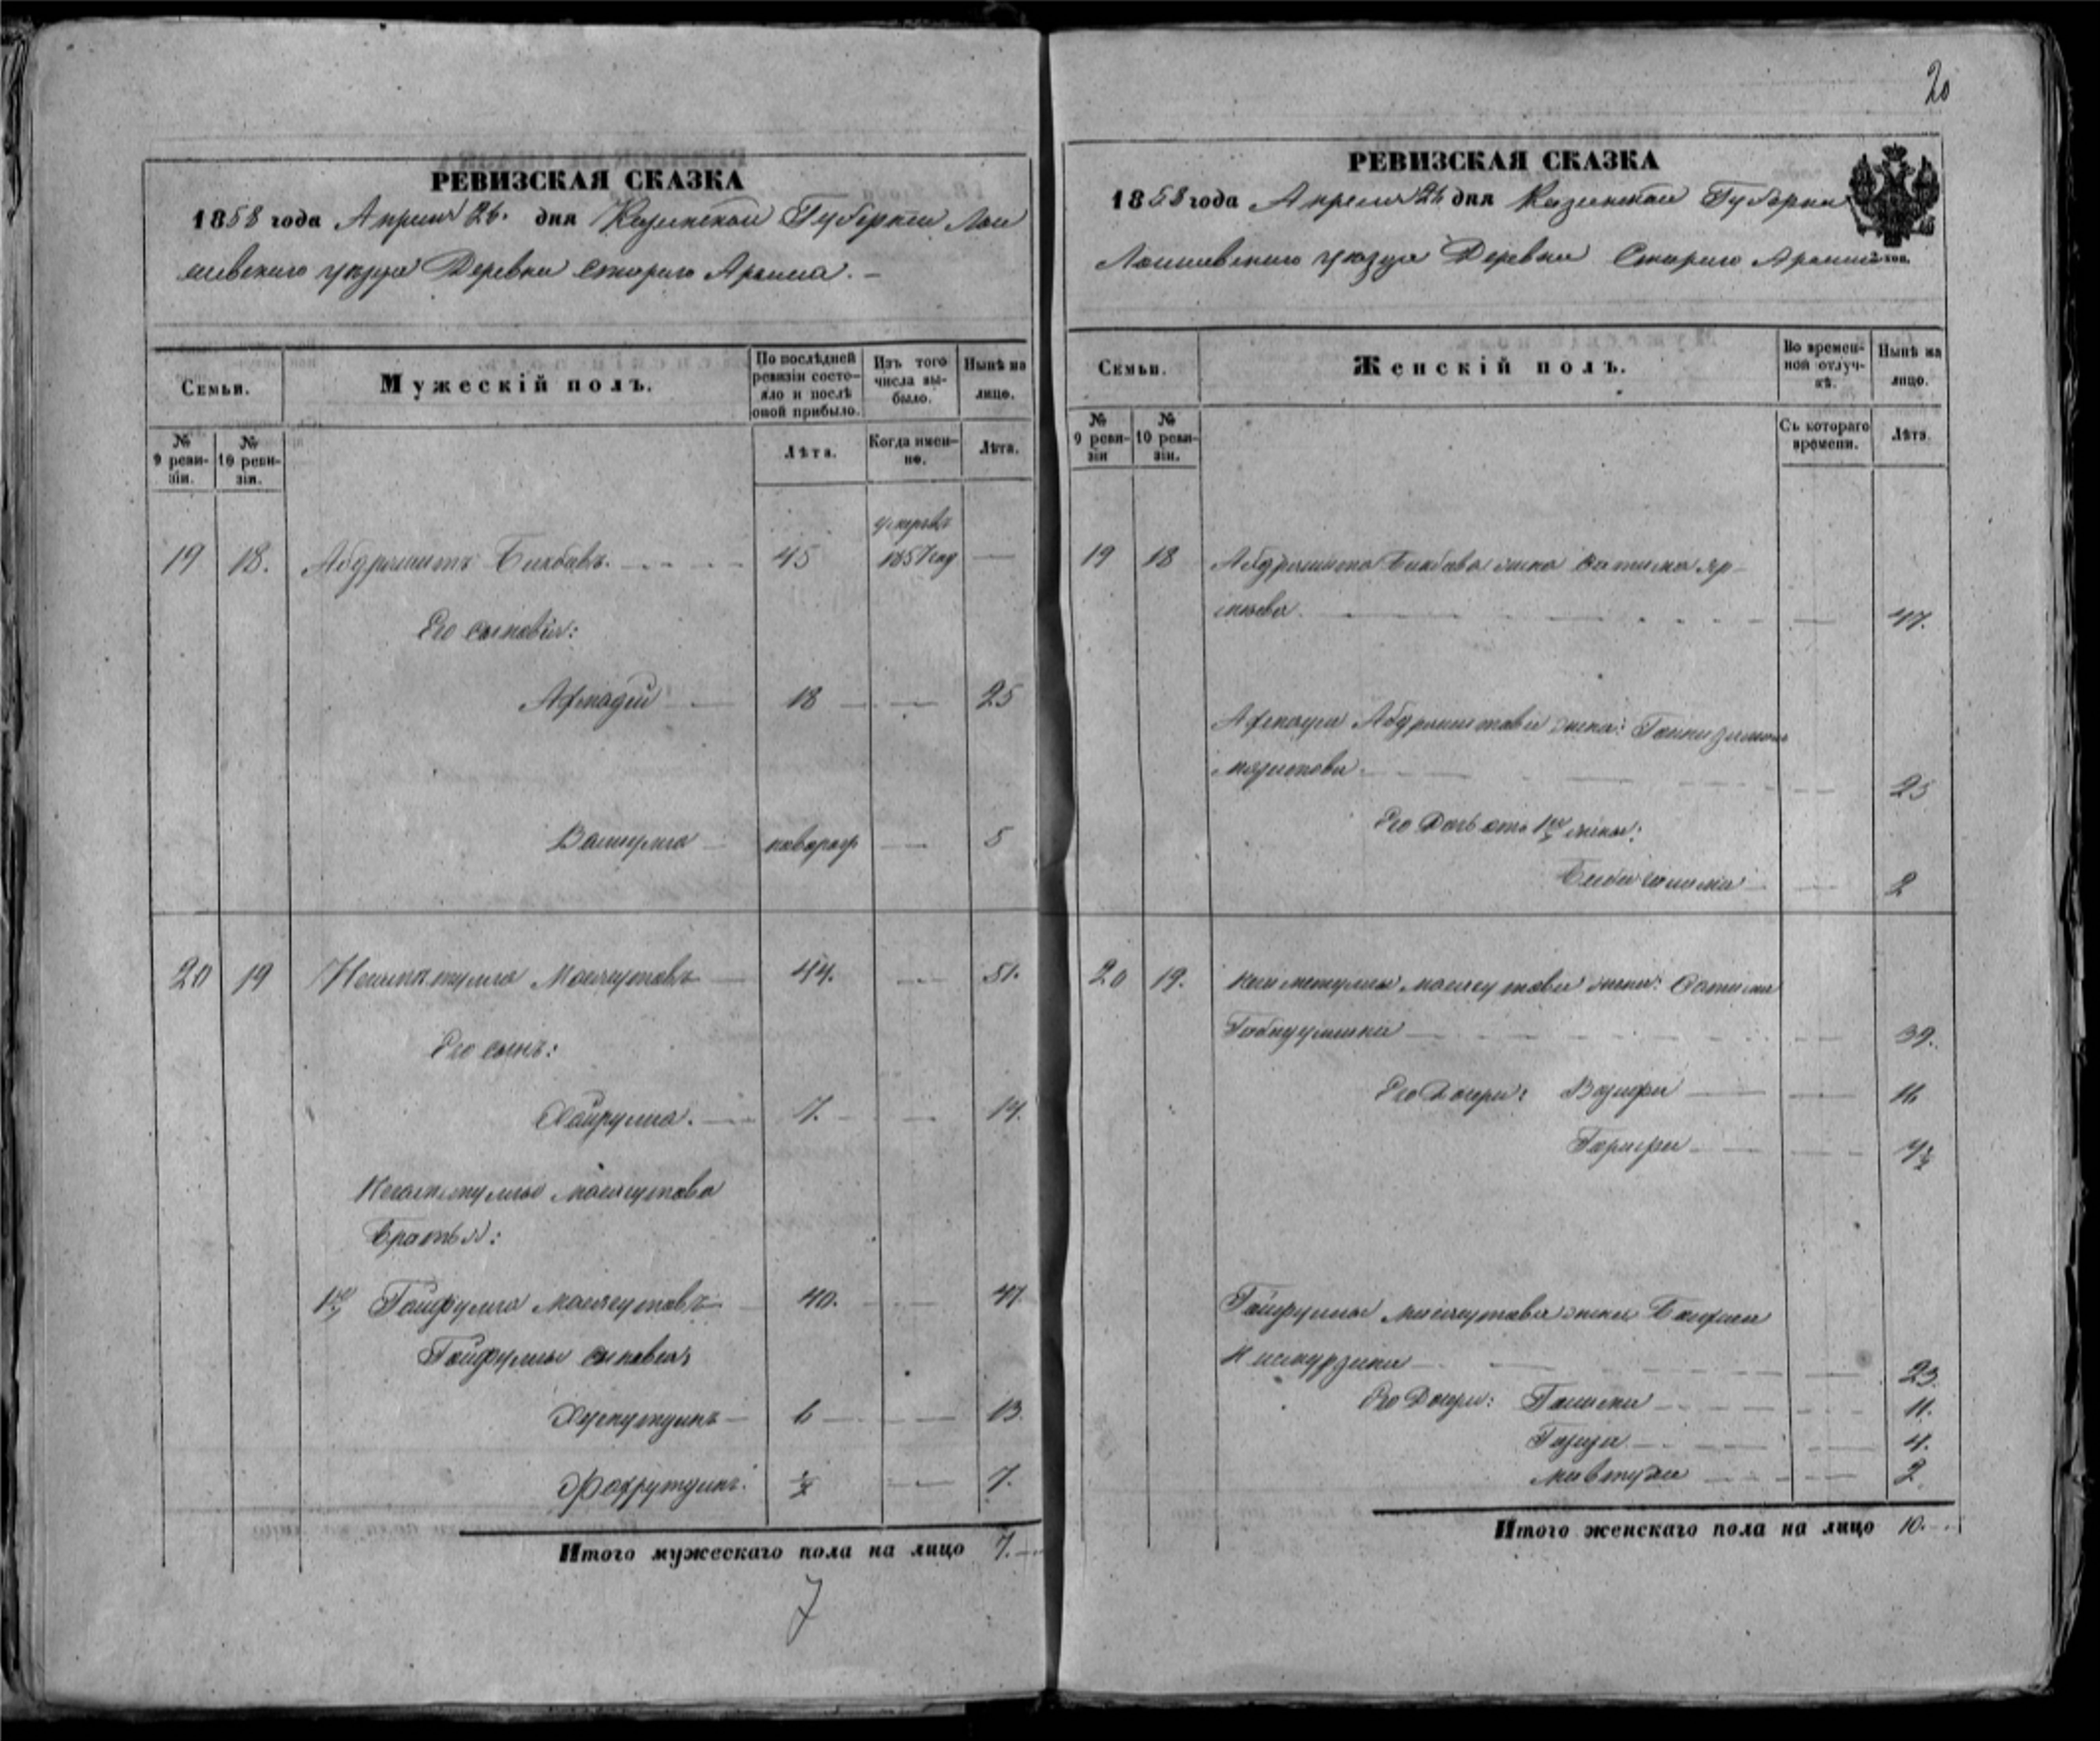 РЕВИЗСКАЯ СКАЗКА
1858 года Апреля 26. дня Казанской Губернии Лаи
шевского уезда Деревни Старого Арыша. –
Семьи.
Мужескій полъ.
По послѣдней ревизіи состояло и послѣ оной прибыло.
Изъ того числа выбыло.
Нынѣ на лицо.
№ 9 ревизіи.
№ 10 ревизіи.
Лѣта.
Когда именно.
Лѣта.
умерѣ
19 18. Абдрашитъ Бикбавъ. 45 1857 год —
Его сыновья:
18 — 25
Валиулла новорож — 5
20 19 Негаметулла Масягутовъ 44. — 51.
Его сынъ:
Хайрулла. 7. — 14.
Негаметуллы Масягутова
братья:
1й Гайфулла Масягутовъ 40. — 47
Гайфуллы сыновья
Хуснутдинъ 6 — 13.
Фахрутдинъ. ½ — 7.
Итого мужескаго пола на лицо 7.
7
20
РЕВИЗСКАЯ СКАЗКА
1858 года Апреля 26 дня Казанской Губернии
Лаишевского уезда Деревни Старого Арыша
Семьи.
Женскій полъ.
Во временной отлучкѣ.
Нынѣ на лицо.
№ 9 ревизіи
№ 10 ревизіи.
Съ котораго времени.
Лѣта.
19 18 Абдрашита Бикбава жена
— 47.
Абдрашитова жена:
— 25
Его Дочь отъ 1й жены:
— 2
20 19. Масягутова жена:
— 39.
Его Дочери: Вазифа — 16
Гарифа — 4½
Гайфуллы Масягутова жена
— 23.
Его Дочери: Галима — 11.
Газиза — 4.
— 2.
Итого женскаго пола на лицо 10.